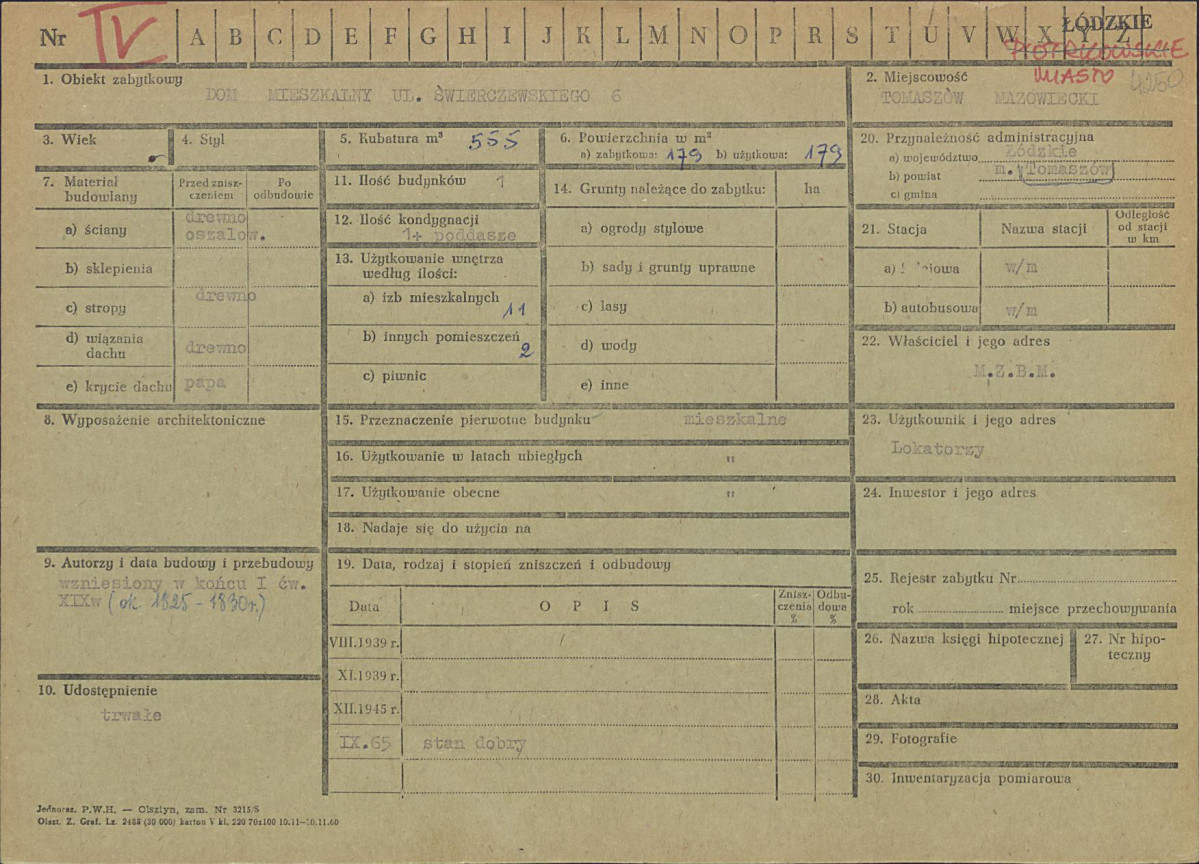 Nr IV A B C D E F G H I J K L M N O P R S T U V W X Y Z ŁÓDZKIE
PIOTRKOWSKIE
MIASTO 4250
1. Obiekt zabytkowy
DOM MIESZKALNY UL. ŚWIERCZEWSKIEGO 6
2. Miejscowość
TOMASZÓW MAZOWIECKI
3. Wiek
4. Styl
5. Kubatura m³ 555
6. Powierzchnia w m²
a) zabytkowa: 179 b) użytkowa: 179
20. Przynależność administracyjna
a) województwo Łódzkie
b) powiat m. Tomaszów
c) gmina
7. Materiał budowlany
Przed zniszczeniem
Po odbudowie
a) ściany drewno
oszalow.
b) sklepienia
c) stropy drewno
d) wiązania
dachu drewno
e) krycie dachu papa
11. Ilość budynków 1
12. Ilość kondygnacji
1+ poddasze
13. Użytkowanie wnętrza
według ilości:
a) izb mieszkalnych
11
b) innych pomieszczeń
2
c) piwnic
14. Grunty należące do zabytku: ha
a) ogrody stylowe
b) sady i grunty uprawne
c) lasy
d) wody
e) inne
21. Stacja Nazwa stacji
Odległość
od stacji
w km
a) w/m
b) autobusowa w/m
22. Właściciel i jego adres
M.Z.B.M.
8. Wyposażenie architektoniczne
15. Przeznaczenie pierwotne budynku mieszkalne
16. Użytkowanie w latach ubiegłych "
17. Użytkowanie obecne "
18. Nadaje się do użycia na
23. Użytkownik i jego adres
Lokatorzy
24. Inwestor i jego adres
9. Autorzy i data budowy i przebudowy
wzniesiony w końcu I ćw.
XIXw (ok. 1825 - 1830r.)
10. Udostępnienie
trwałe
19. Data, rodzaj i stopień zniszczeń i odbudowy
Data OPIS
Zniszczenia %
Odbudowa %
VIII.1939 r.
XI.1939 r.
XII.1945 r.
IX.65 stan dobry
25. Rejestr zabytku Nr
rok miejsce przechowywania
26. Nazwa księgi hipotecznej
27. Nr hipoteczny
28. Akta
29. Fotografie
30. Inwentaryzacja pomiarowa
Jednoraz. P.W.H. — Olsztyn, zam. Nr 3215/S
Olszt. Z. Graf. Lz. 2488 (30 000) karton V kl. 220 70x100 10.11—10.11.60